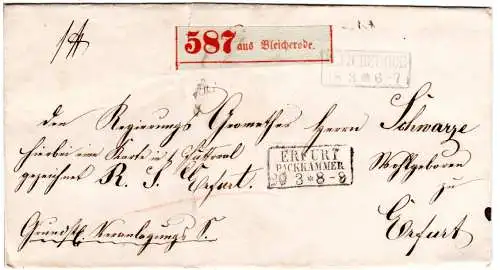 587 aus Bleicherode.
BLEICHERODE
18 3 * 6-7
den Regierungs Geometer Herrn Schwarze
hierbei eine Karte in 1 Futteral
Wohlgeboren
gezeichnet R. S. Erfurt.
zu
ERFURT
PACKKAMMER
20 3 * 8-9
Erfurt
Grundst. Veranlagungs S.